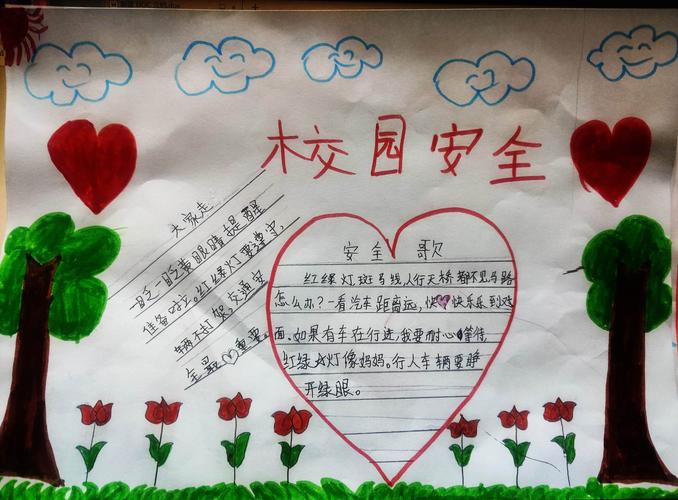 校园安全
大家走,
一眨一眨黄眼睛提醒
准备好立。红绿灯要遵守,
辆不打架,交通安
全最重要。
安全歌
红绿灯斑马线,人行天桥都不见马路
怎么办?一看汽车距离远,快快乐乐到对
面。如果有车在行进,我要耐心等待,
红绿灯像妈妈。行人车辆要睁
开绿眼。